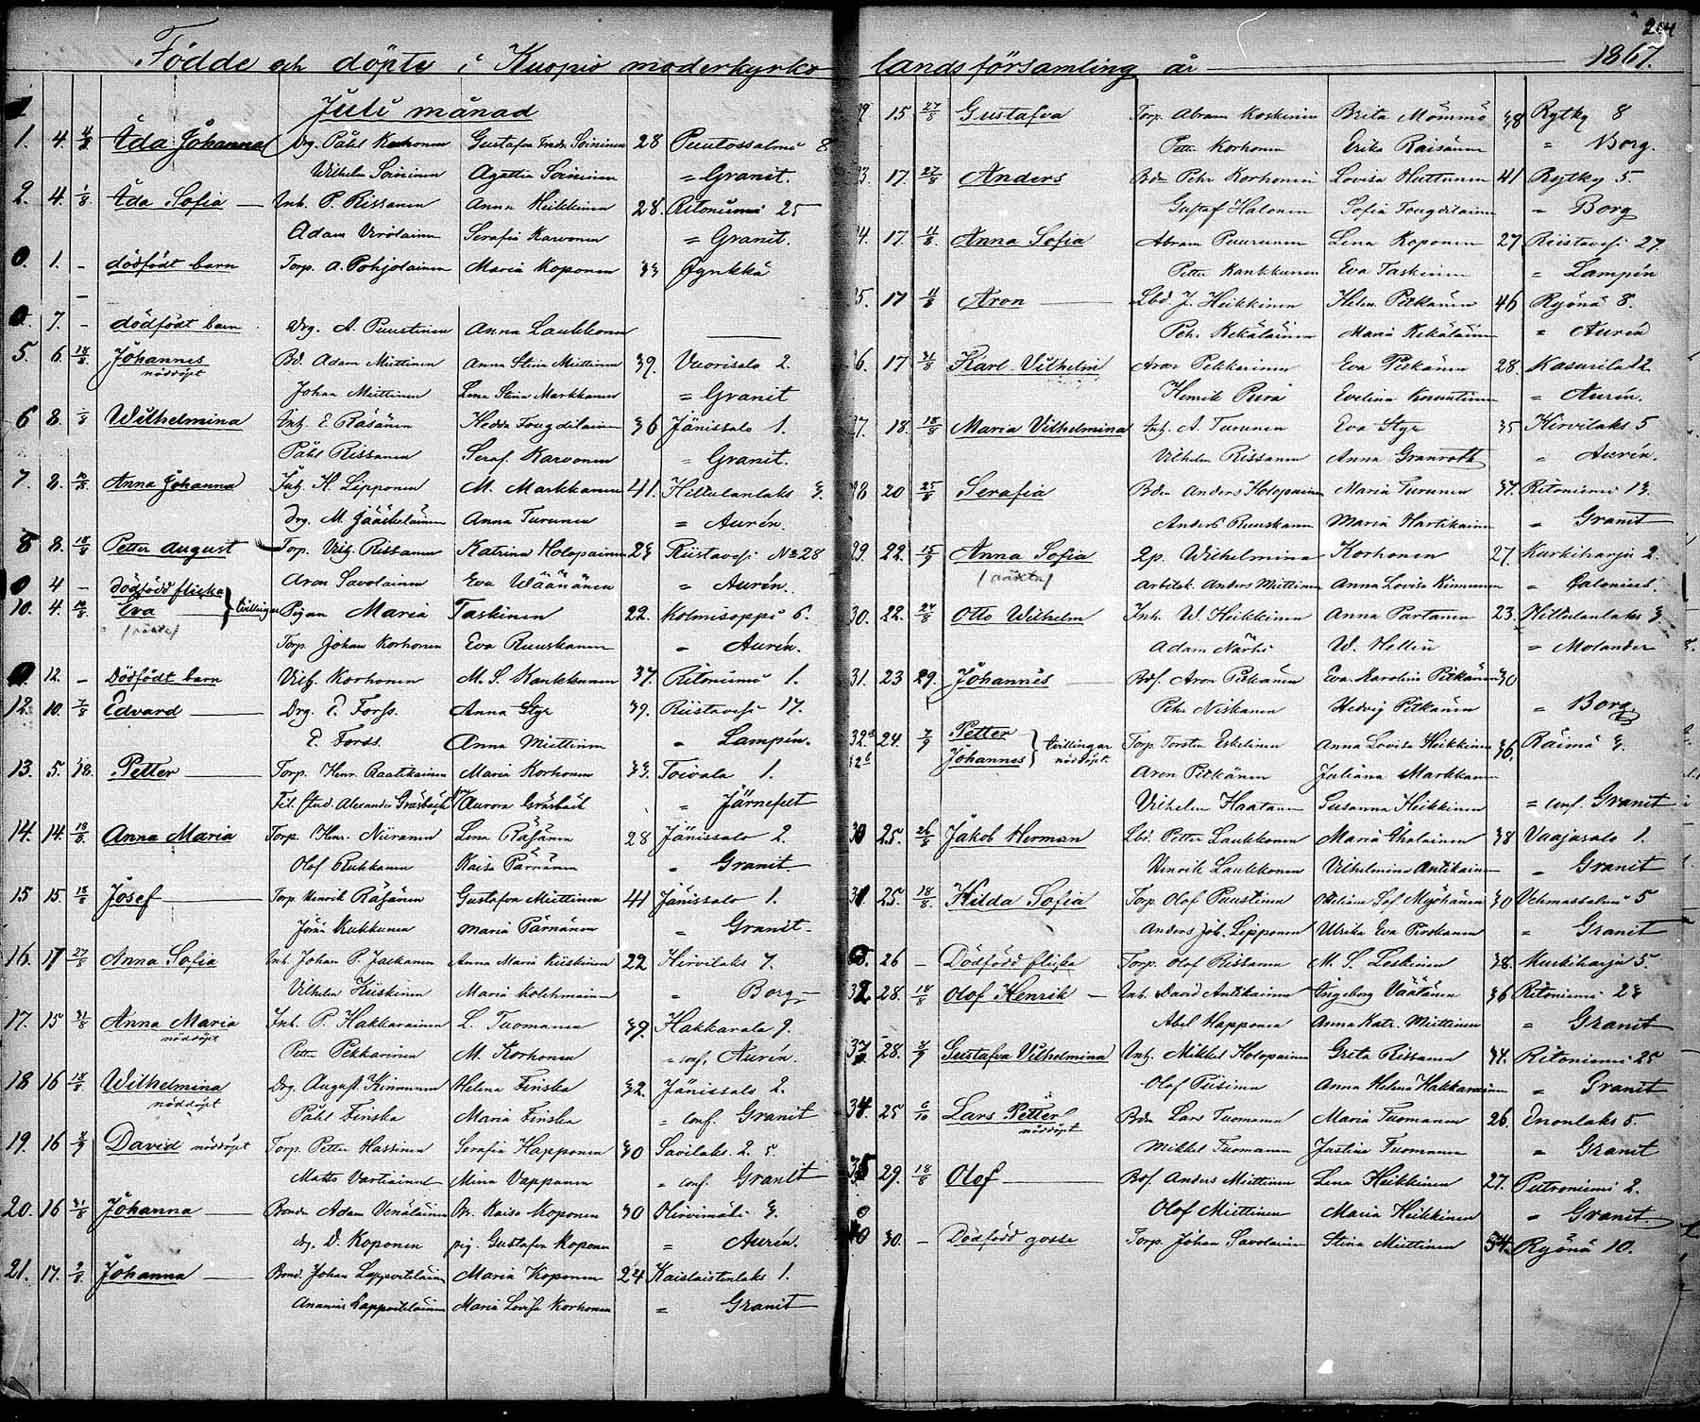 204
Födde och döpte i Kuopio moderkyrko landsförsamling år 1867.
Juli månad
1. 4. Ada Johanna Drg. Påhl Korhonen Gustafva Soininen 28 Puutossalmi 8
Wilhelm Soininen Agatha Soininen = Granit.
2. 4. 1/8 Ada Sofia Inh. P. Rissanen Anna Heikkinen 28. Ritoniemi 25
Adam Serafia Karvonen = Granit.
0. 1. - dödfödt barn Torp. A. Pohjolainen Maria Koponen 33 Jynkkä
0. 7. - dödfödt barn Drg. A. Puustinen Anna Laukkonen
5. 6. Johannes Bd. Adam Miettinen Anna Stina Miettinen 39. Vuorisalo 2.
nöddöpt
Johan Miettinen Lena Stina Markkanen = Granit
6 8. Wilhelmina Inh. E. Räsänen Hedda Fougdilainen 36 Jänissalo 1.
Påhl Rissanen Seraf. Karvonen = Granit.
7. 8. Anna Johanna Inh. H. Lipponen M. Markkanen 41. Hiltulanlaks 3.
Drg. M. Jääskeläinen Anna Turunen = Aurén.
8 8. 18/8 Petter August Torp. Vilh. Rissanen Katrina Holopainen 23 Riistavesi No 28
Aron Savolainen Eva Väänänen = Aurén.
0 4 - Dödfödd flicka
10. 4. Eva tvillingar Pigan Maria Taskinen 22. Kolmisoppi 6.
Torp. Johan Korhonen Eva Ruuskanen = Aurén.
12. - Dödfödt barn Vilh. Korhonen M. S. Kankkunen 37. Ritoniemi 1.
12. 10. 7/8 Edvard Drg. E. Forss. Anna Styr 39. Riistavesi 17.
E. Forss. Anna Miettinen = Lampén.
13. 5. 18. Petter Torp. Henr. Raatikainen Maria Korhonen 33. Toivala 1.
Fil. stud. Alexander Gråsbäck Aurora Gråsbäck = Järnefelt
14. 14. 18/8 Anna Maria Torp. Henr. Niiranen Lena Räsänen 28 Jänissalo 2.
Olof Kukkonen Kaisa Pärnänen = Granit
15 15. 18/8 Josef Torp. Henrik Räsänen Gustafva Miettinen 41 Jänissalo 1.
Kukkonen Maria Pärnänen = Granit.
16. 17 27/8 Anna Sofia Inh. Johan P. Jaskanen Anna Maria Kiiskinen 22 Hirvilaks 7.
Vilhelm Kiiskinen Maria Kolehmainen = Borg
17. 15 31/8 Anna Maria Inh. P. Hakkarainen L. Tuomanen 39. Hakkarala 9.
nöddöpt
Petter Pekkarinen M. Korhonen = conf. Aurén.
18 16 18/8 Wilhelmina Drg. August Kinnunen Helena Finska 32. Jänissalo 2.
nöddöpt
Påhl Finska Maria Finska = conf. Granit
19. 16 David nöddöpt Torp. Petter Hassinen Serafia Happonen 30 Savilaks. 2. 5.
Matts Vartiainen Mina Vappanen = conf. Granit
20. 16 31/8 Johanna Bonde Adam Venäläinen Br. Kaisa Koponen 30 Hirvimäki 3.
drg. D. Koponen pig. Gustafva Koponen = Aurén.
21. 17. Johanna Bond. Johan Lappveteläinen Maria Koponen 24 Kaislastenlaks 1.
Ananias Lappveteläinen Maria Lovisa Korhonen = Granit
15 27/8 Gustafva Torp. Abram Koskinen Brita Mömmö 38 Rytky 8
Petter Korhonen Erika Raisänen = Borg.
17. 27/8 Anders Bdn Pehr Korhonen Lovisa Huttunen 41 Rytky 5.
Gustaf Halonen Sofia Fougdilainen = Borg
17. Anna Sofia Abram Puurunen Lena Koponen 27 Riistavesi 27.
Petter Kankkunen Eva Taskinen = Lampén
17 Aron Lbd. J. Heikkinen Helen. Pitkänen 46 Ryönä 8.
Pehr Kekäläinen Maria Kekäläinen = Aurén
17 31/8 Karl Vilhelm Aron Pekkarinen Eva Pitkänen 28. Kasurila 12
Henrik Pura Evelina = Aurén.
18. 18/8 Maria Vilhelmina Inh. A. Turunen Eva Styr 35 Hirvilaks 5
Vilhelm Rissanen Anna Granroth = Aurén.
20 25/8 Serafia Bdn Anders Holopainen Maria Turunen 37. Ritoniemi 13.
Anders Ruuskanen Maria Hartikainen = Granit
29. 22. Anna Sofia Qp. Wilhelmina Korhonen 27. Kurkiharju 2.
Arbetsk. Anders Miettinen Anna Lovisa Kinnunen = Calonius.
30. 22. Otto Wilhelm Inh. W. Heikkinen Anna Partanen 23. Hiltulanlaks 3
Adam Närhi W. Hellin = Molander
31. 23 29. Johannes Bdf. Aron Pitkänen Eva Karolin Pitkänen 30
Pehr Niskanen Hedvig Pitkänen = Borg.
32 24. 7/9 Petter
Johannes tvillingar nöddöpt Torp. Torsten Eskelinen Anna Lovisa Heikkinen 36. Räimä 3.
Aron Pitkänen Juliana Markkanen
Vilhelm Haatanen Susanna Heikkinen = conf. Granit
30 25. 26/8 Jakob Herman Lbd. Petter Laukkonen Maria Tholainen 38 Vaajasalo 1.
Henrik Laukkonen Vilhelmina Antikainen = Granit
31. 25. 18/8 Hilda Sofia Torp. Olof Puustinen Sof. Myöhänen 30 Vehmassalmi 5
Anders Joh. Lipponen Ulrika Eva Pirskanen = Granit
26 - Dödfödd flicka Torp. Olof Rissanen M. S. Leskinen 38. Kurkiharju 5.
32 28. 18/8 Olof Henrik Inh. David Antikainen Ingeborg Väätänen 36 Ritoniemi 23
Abel Happonen Anna Katr. Miettinen = Granit
28. Gustafva Vilhelmina Inh. Mikkel Holopainen Greta Rissanen 34. Ritoniemi 25
Olof Piisinen Anna Helena Hakkarainen = Granit
34. 25 6/10 Lars Petter Bdn Lars Tuomanen Maria Tuomanen 26. Enonlaks 5.
nöddöpt
Mikkel Tuomanen Justina Tuomanen = Granit
35 29. 18/8 Olof Bdf. Anders Miettinen Lena Heikkinen 27. Putroniemi 2.
Olof Miettinen Maria Heikkinen = Granit
0 30. - Dödfödd gosse Torp. Johan Savolainen Stina Miettinen 34. Ryönä 10.